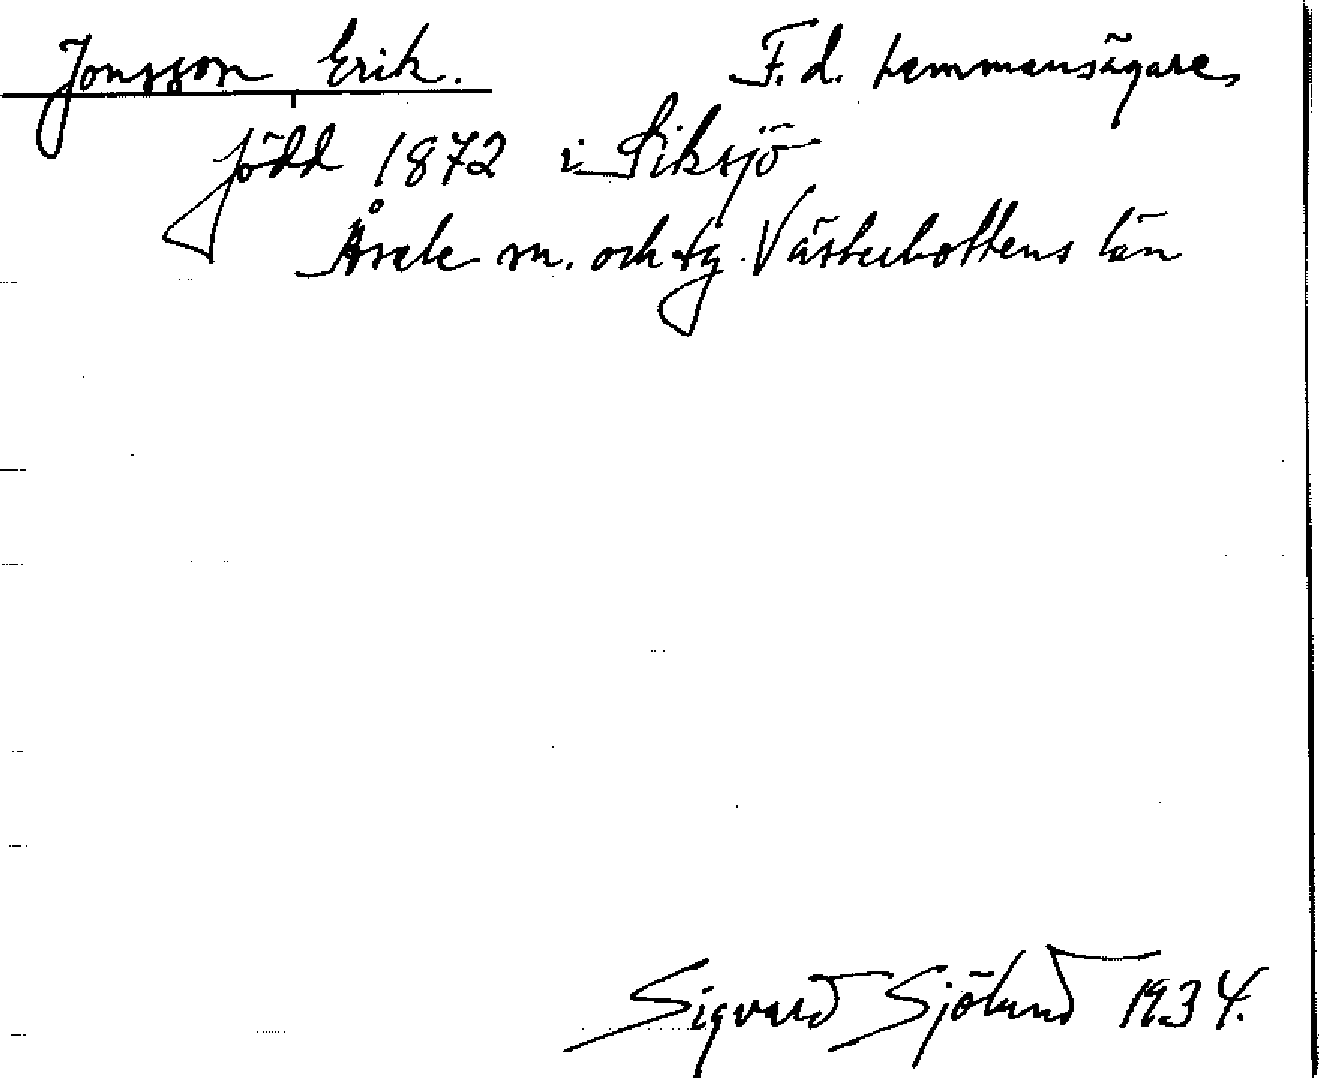 Jonsson Erik. F. d. hemmansägare
född 1872 i Siksjö
Åsele sn. och tg. Västerbottens län
Sigvard Sjölund 1934.